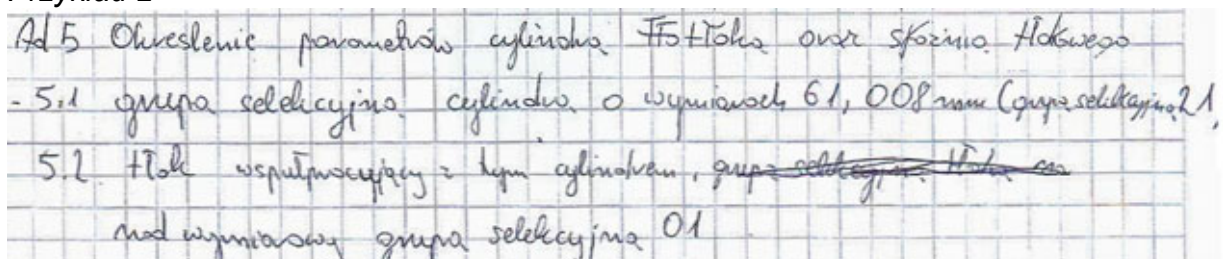 Ad 5 Określenie parametrów cylindra tłoka oraz sfoznia tłokowego
- 5.1 grupa selekcyjna cylindra o wymiarach 61,008 mm (grupa selekcyjna 21,
5.2. tłok wspułpracujący z tym cylindrem, grupa selekcyjna tłoka
nad wymiarowy grupa selekcyjna 01